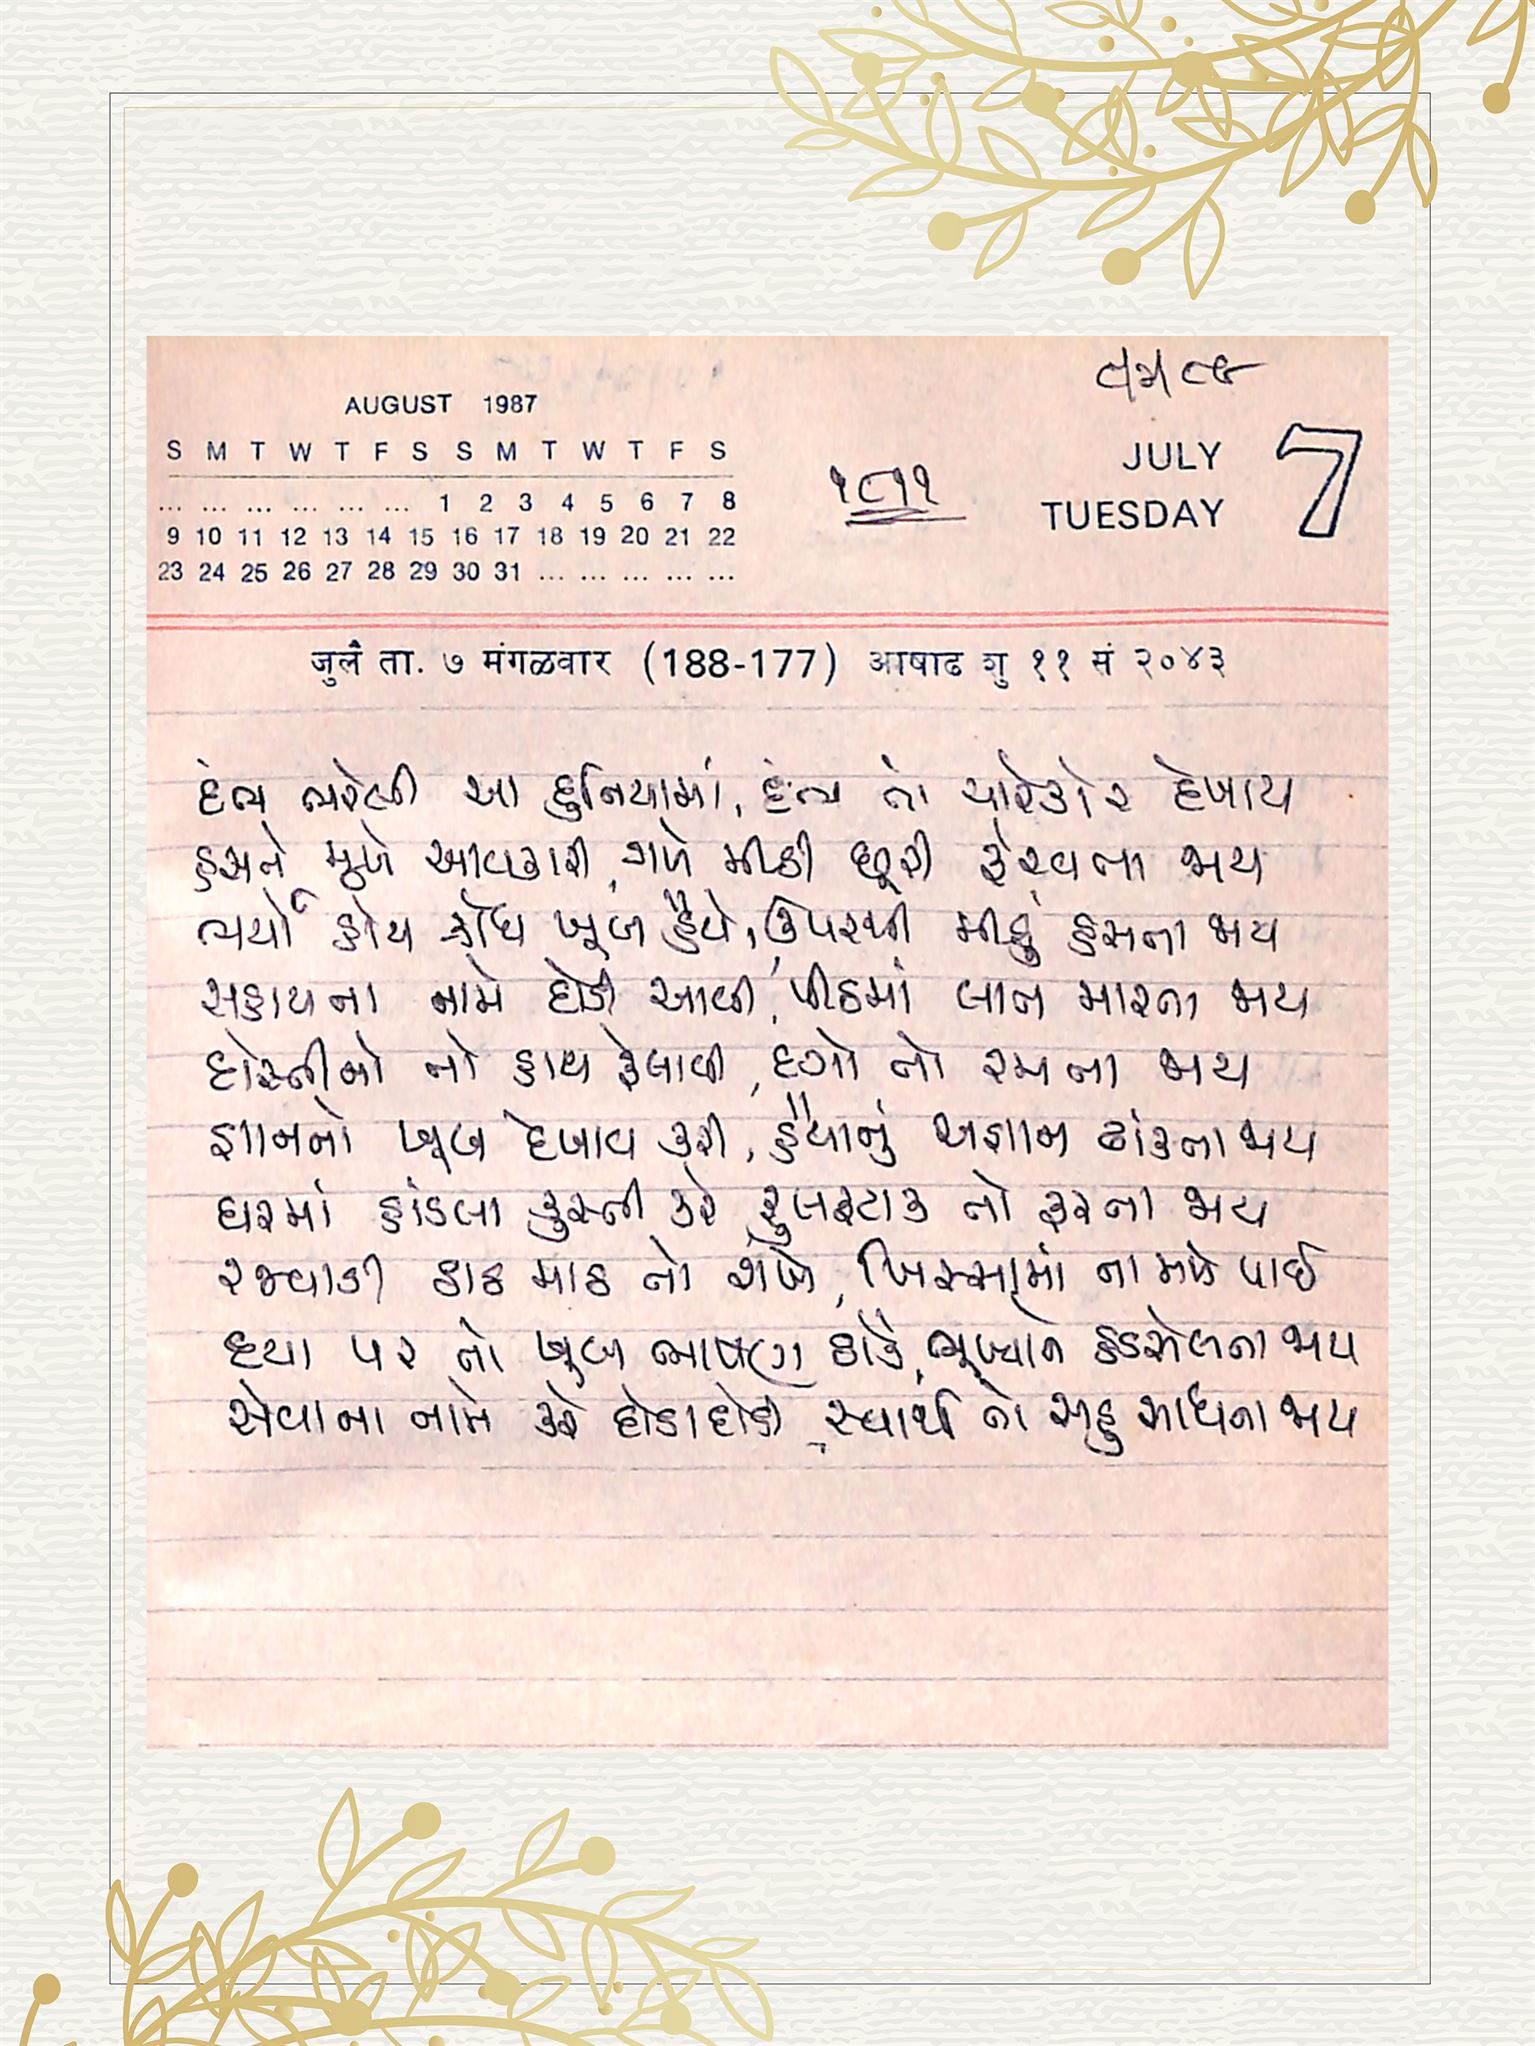 AUGUST 1987
S M T W T F S S M T W T F S
... ... ... ... ... ... 1 2 3 4 5 6 7 8
9 10 11 12 13 14 15 16 17 18 19 20 21 22
23 24 25 26 27 28 29 30 31 ... ... ... ... ...
૧૮૧૧
JULY 7
TUESDAY
जुलै ता. ७ मंगळवार (188-177) आषाढ शु ११ सं २०४३
દંભ ભરેલી આ દુનિયામાં, દંભ તો ચારેકોર દેખાય
હસતે મુખે આવકારી, ગળે મીઠી છૂરી ફેરવતા જાય
ભર્યો હોય ક્રોધ ખૂબ હૈયે, ઉપરથી મીઠું હસતા જાય
સહાયના નામે દોડી આવી, પીઠમાં લાત મારતા જાય
દોસ્તીનો તો હાથ ફેલાવી, દગો તો રમતા જાય
જ્ઞાનનો ખૂબ દેખાવ કરી, હૈયાનું અજ્ઞાન ઢાંકતા જાય
ઘરમાં હાંડલા કુસ્તી કરે, ફુલફટાક તો ફરતા જાય
રજવાડી ઠાઠ માઠ તો રાખે, ખિસ્સામાં ના મળે પાઈ
દયા પર તો ખૂબ ભાષણ ઠોકે, ભૂખ્યાને હડસેલતા જાય
સેવાના નામે કરે દોડાદોડી, સ્વાર્થ તો સહુ સાધતા જાય